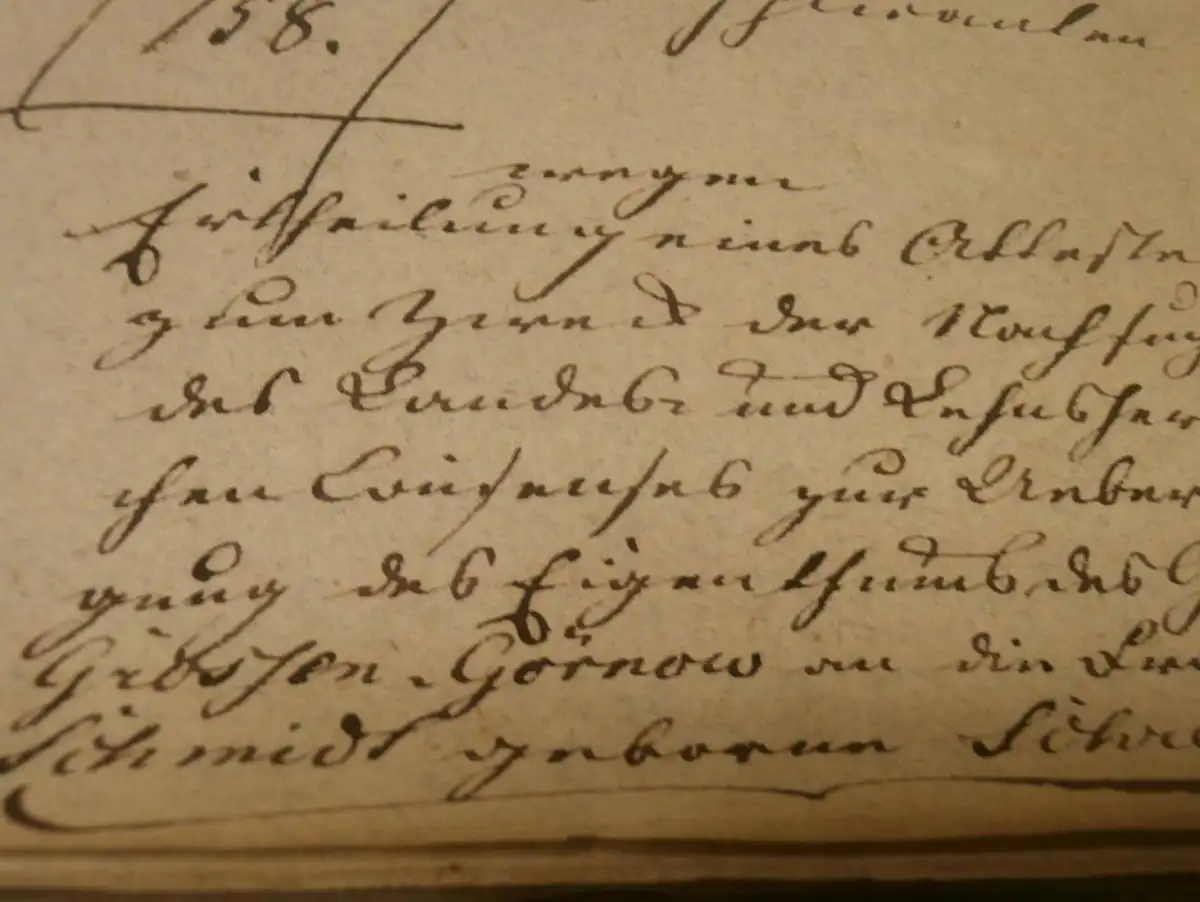 158.
wegen
Ertheilung eines Atteste
zum Zweck der Nachsuch
des Landes- und Lehnsherr
chen Consenses zur Ueber
gung des Eigenthums des G
Grossen-Görnow an die Fra
Schmidt geborne Schu